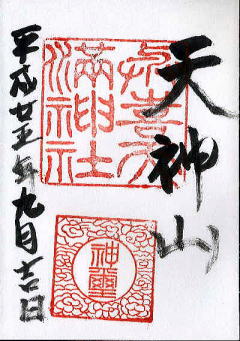 天神山
満神社
神璽
平成廿五年九月吉日